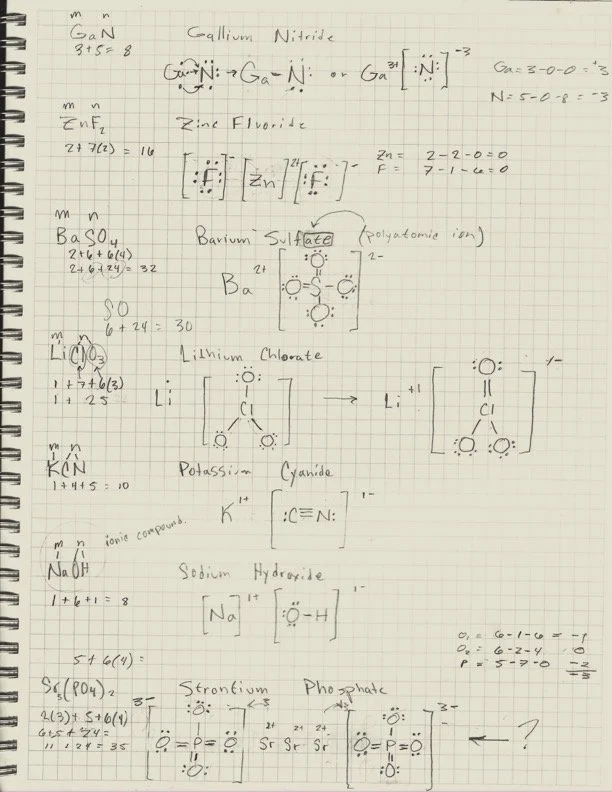 m n
GaN Gallium Nitride
3+5=8
Ga N: → Ga – N: or Ga³⁺ [:N:]⁻³
Ga = 3-0-0 = +3
N = 5-0-8 = -3
m n
ZnF₂ Zinc Fluoride
2+7(2) = 16
[:F:]⁻ [Zn]²⁺ [:F:]⁻
Zn = 2-2-0 = 0
F = 7-1-6 = 0
m n
BaSO₄ Barium Sulfate (polyatomic ion)
2+6+6(4)
2+6+24 = 32
Ba²⁺ [O O S O O]²⁻
SO
6+24 = 30
m n
LiClO₃ Lithium Chlorate
1+7+6(3)
1+25
Li [O Cl O O] → Li⁺¹ [O Cl O O]¹⁻
m n
KCN Potassium Cyanide
1+4+5 = 10
K¹⁺ [:C≡N:]¹⁻
m n ionic compound.
NaOH Sodium Hydroxide
1+6+1 = 8
[Na]¹⁺ [:O–H]¹⁻
5+6(4) =
O₁ = 6-1-6 = -1
O₂ = 6-2-4 0
P = 5-7-0 -2
-3
Sr₃(PO4)₂ Strontium Phosphate
2(3)+5+6(4)
6+5+24 =
11+24 = 35
[O O=P=O O]³⁻ Sr²⁺ Sr²⁺ Sr²⁺ [O O=P=O O]³⁻ ← ?